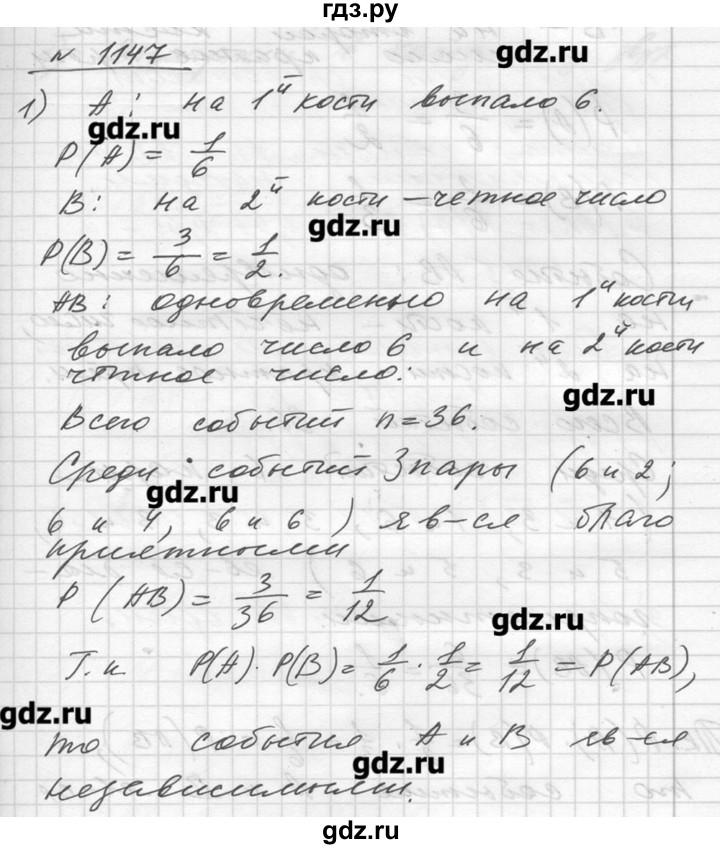 гдз.ру
№ 1147
gdz.ru
1) A: на 1й кости выпало 6.
gdz.ru
P(A) = 1/6
B: на 2й кости – четное число
gdz.ru
P(B) = 3/6 = 1/2.
AB: одновременно на 1й кости
выпало число 6 и на 2й кости
четное число:
gdz.ru
Всего событий n=36.
Среди событий 3 пары (6 и 2;
gdz.ru
6 и 4, 6 и 6) яв-ся благо
приятными
P(AB) = 3/36 = 1/12
gdz.ru
Т.к P(A)·P(B) = 1/6 · 1/2 = 1/12 = P(AB),
gdz.ru
то события A и B яв-ся
gdz.ru
независимыми.
gdz.ru